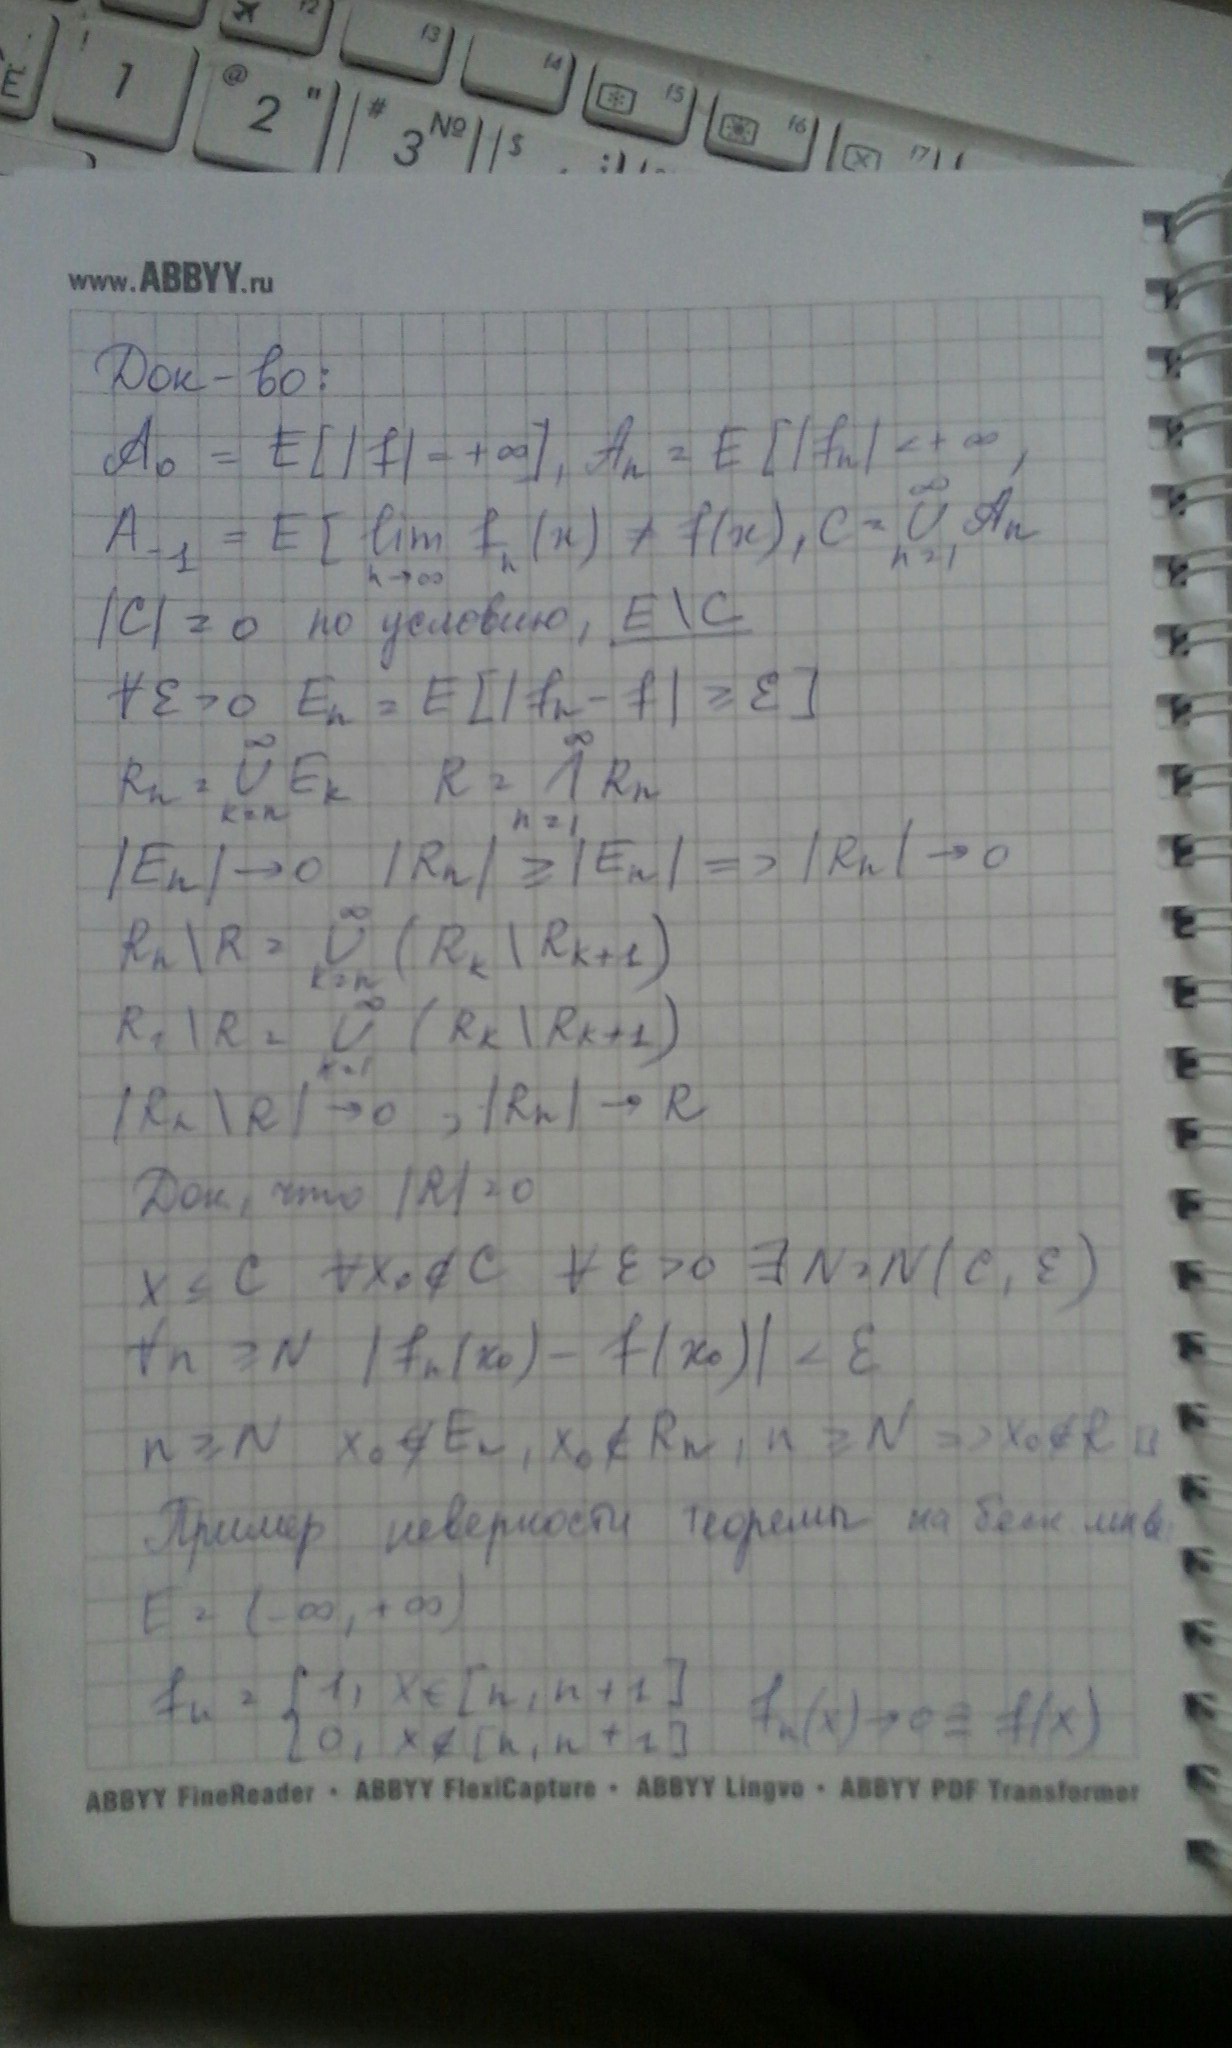 12 13 14 15 16 17
Ё ! 1 @ 2 " # 3 № $
www.ABBYY.ru
Док-во:
A₀ = E[|f| = +∞], Aₙ = E[|fₙ| < +∞,
A₋₁ = E[lim fₙ(x) ≠ f(x), C = ∪ Aₙ
n→∞ ∞ n=1
|C| = 0 по условию, E\C
∀ε>0 Eₙ = E[|fₙ - f| ≥ ε]
Rₙ = ∞∪k=n Eₖ R = ∞∩n=1 Rₙ
|Eₙ| → 0 |Rₙ| ≥ |Eₙ| => |Rₙ| → 0
Rₙ\R = ∞∪k=n (Rₖ\Rₖ₊₁)
R₁\R = ∞∪k=1 (Rₖ\Rₖ₊₁)
|Rₙ\R| → 0, |Rₙ| → R
Док, что |R| = 0
x ≤ C ∀x₀∉C ∀ε>0 ∃N=N(C, ε)
∀n ≥ N |fₙ(x₀) - f(x₀)| < ε
n ≥ N x₀∉Eₙ, x₀∉Rₙ, n ≥ N => x₀∉R □
Пример неверности теоремы на беск мн-ве
E = (-∞, +∞)
fₙ = {1, x∈[n, n+1]
{0, x∉[n, n+1] fₙ(x)→0≡f(x)
ABBYY FineReader • ABBYY FlexiCapture • ABBYY Lingvo • ABBYY PDF Transformer